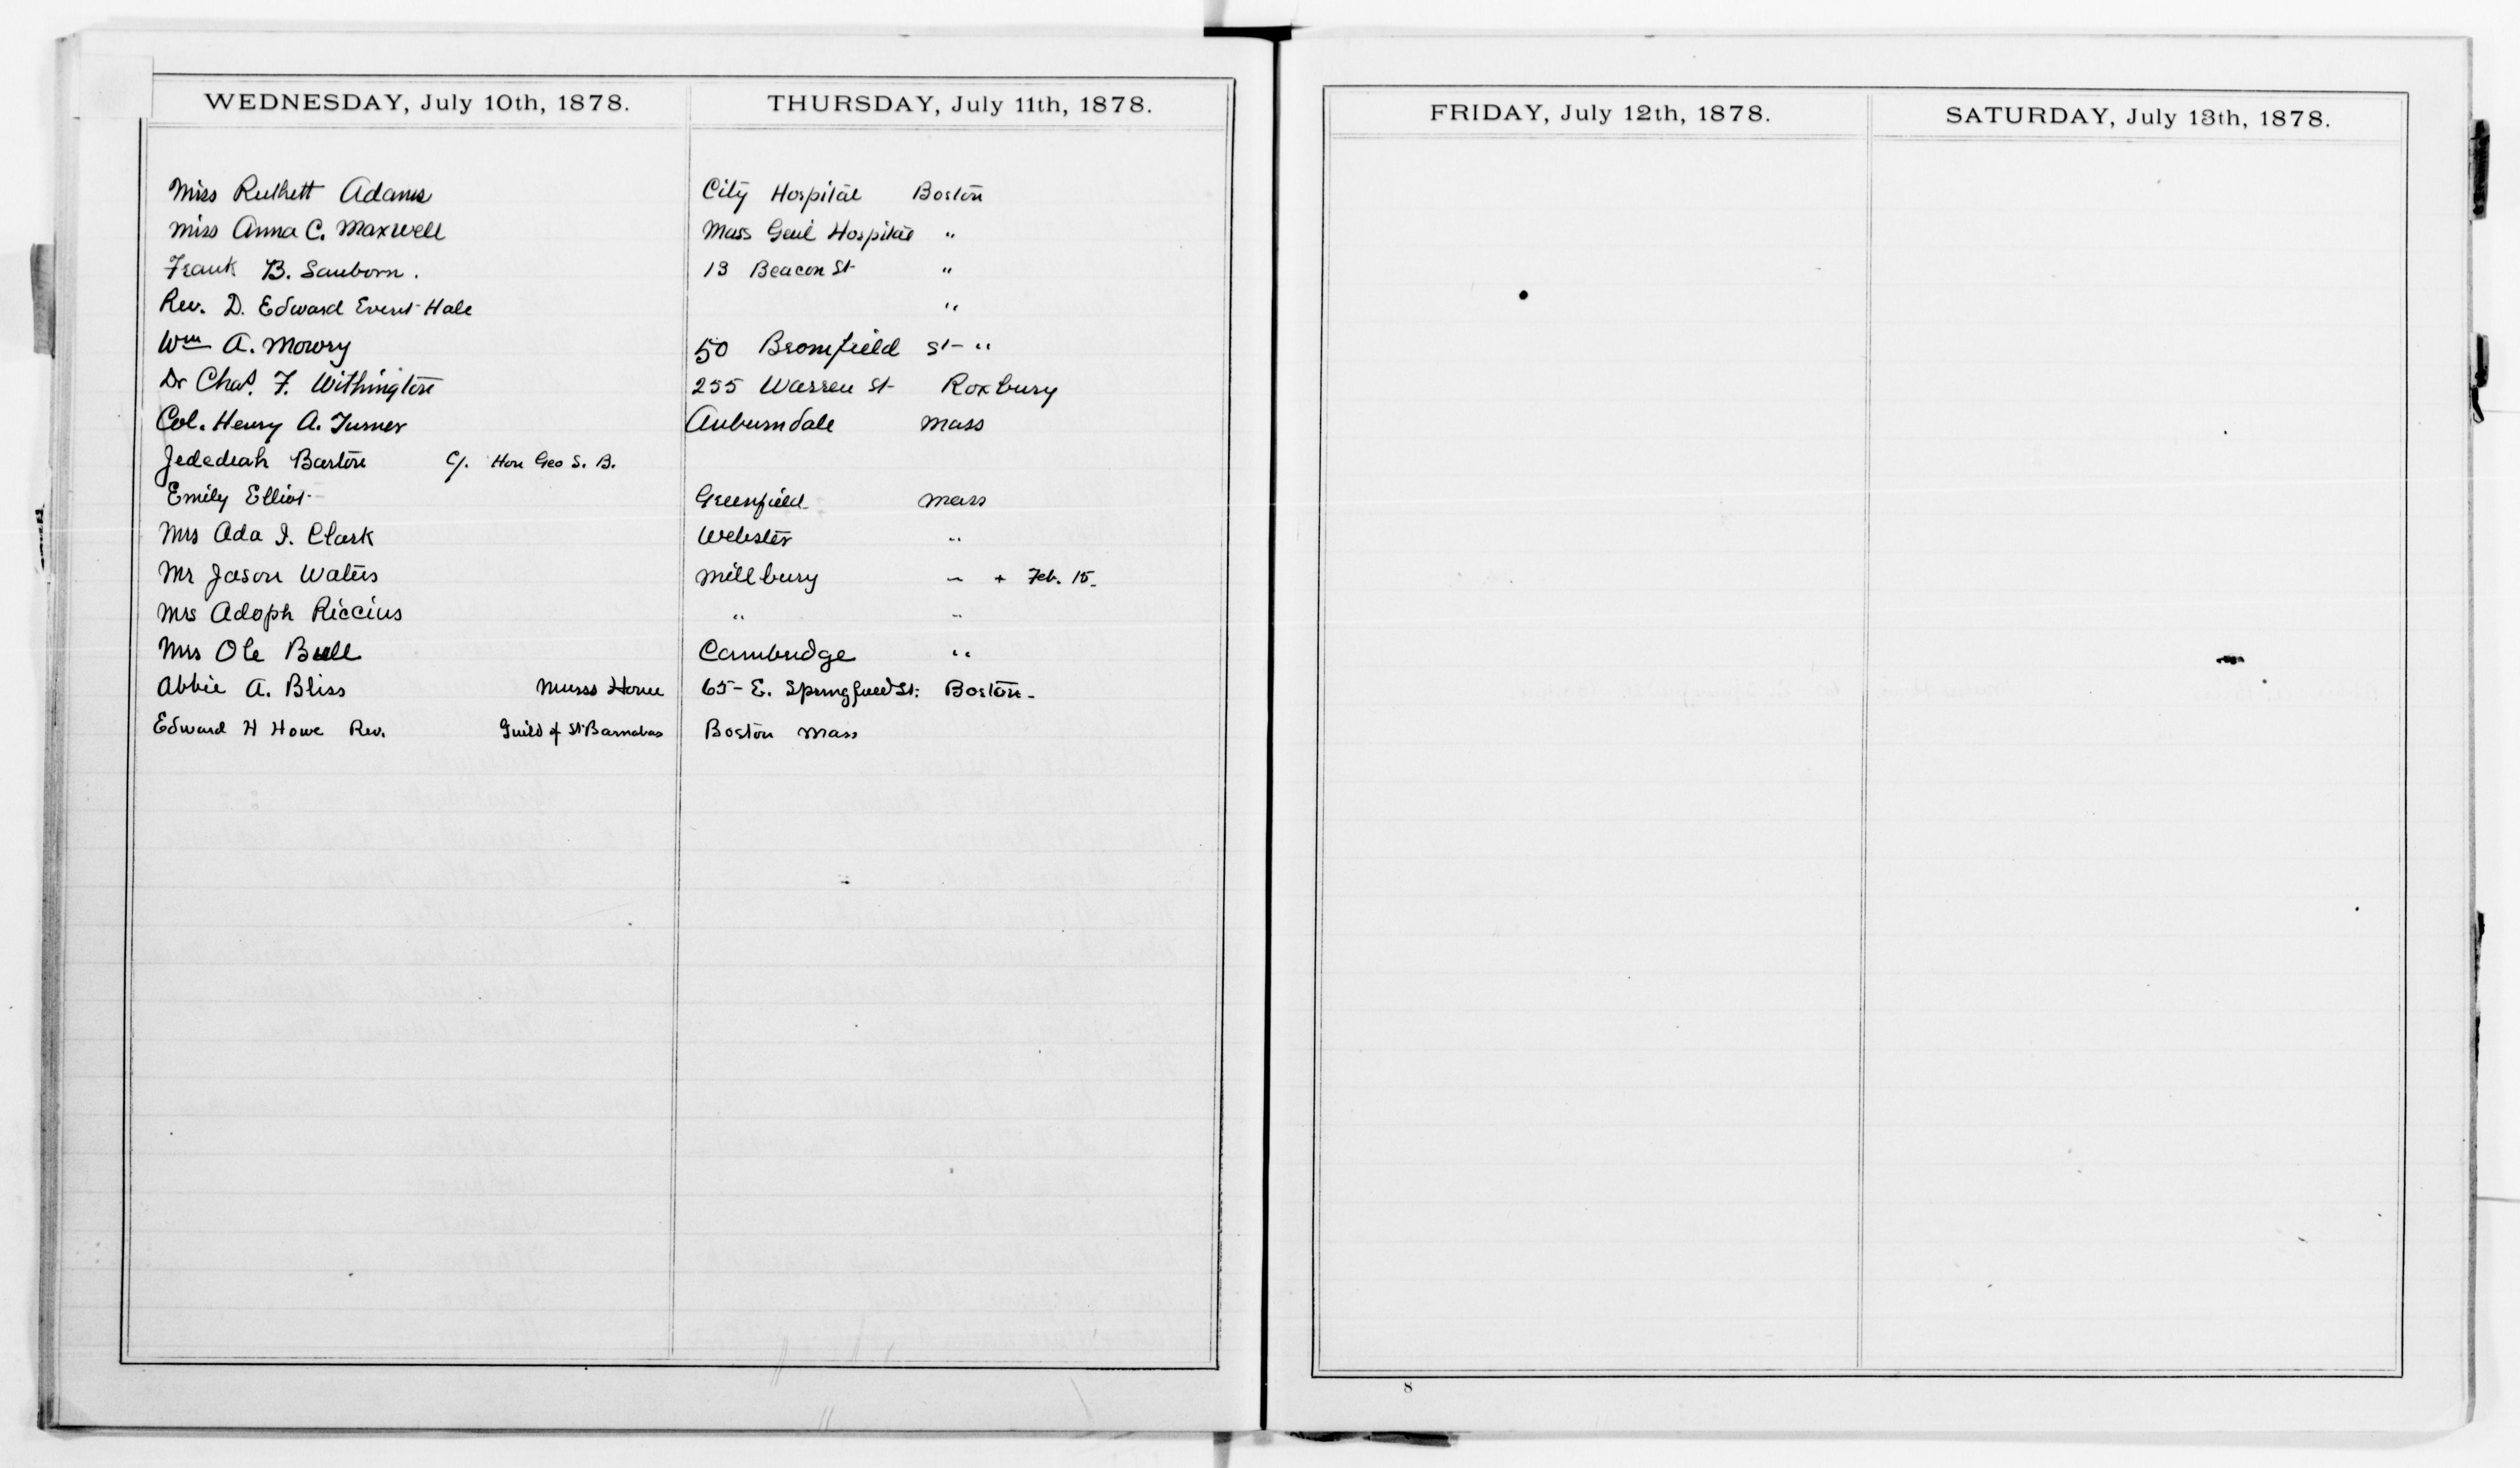 WEDNESDAY, July 10th, 1878. THURSDAY, July 11th, 1878.
Miss Adams City Hospital Boston
Miss Anna C. Maxwell Mass Genl Hospital "
Frank B. Sanborn. 13 Beacon St "
Rev. D. Edward Everet Hale "
Wm A. Mowry 50 Bromfield St - "
Dr Chas. F. Withington 255 Warren St Roxbury
Col. Henry A. Turner Auburndale Mass
Jedediah Barton Hon Geo S. B.
Emily Elliot Greenfield Mass
Mrs Ada I. Clark Webster "
Mr Jason Waters Millbury " + Feb. 15
Mrs Adoph Riccius " "
Mrs Ole Bull Cambridge "
Abbie A. Bliss Nurses Home 65 - E. Springfield St. Boston -
Edward H Howe Rev. Guild of St Barnabas Boston Mass
FRIDAY, July 12th, 1878. SATURDAY, July 13th, 1878.
8